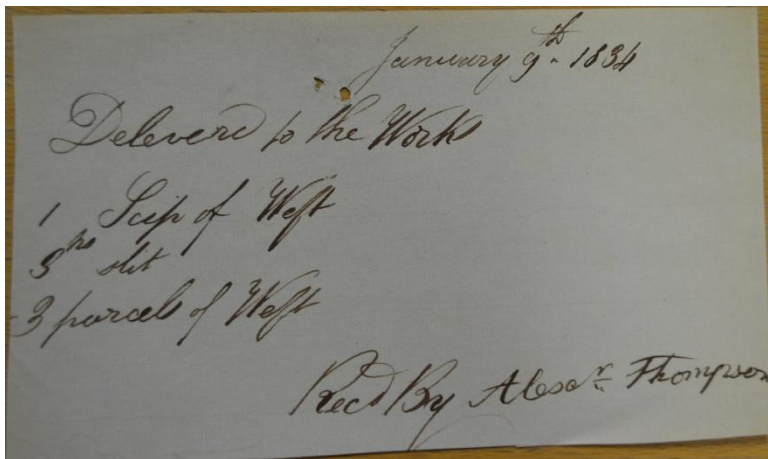 January 9th. 1834
Deleverd to the Works
1 Scip of Weft
3 ps slit
3 parcels of Weft
Recd By Alexr Thompson